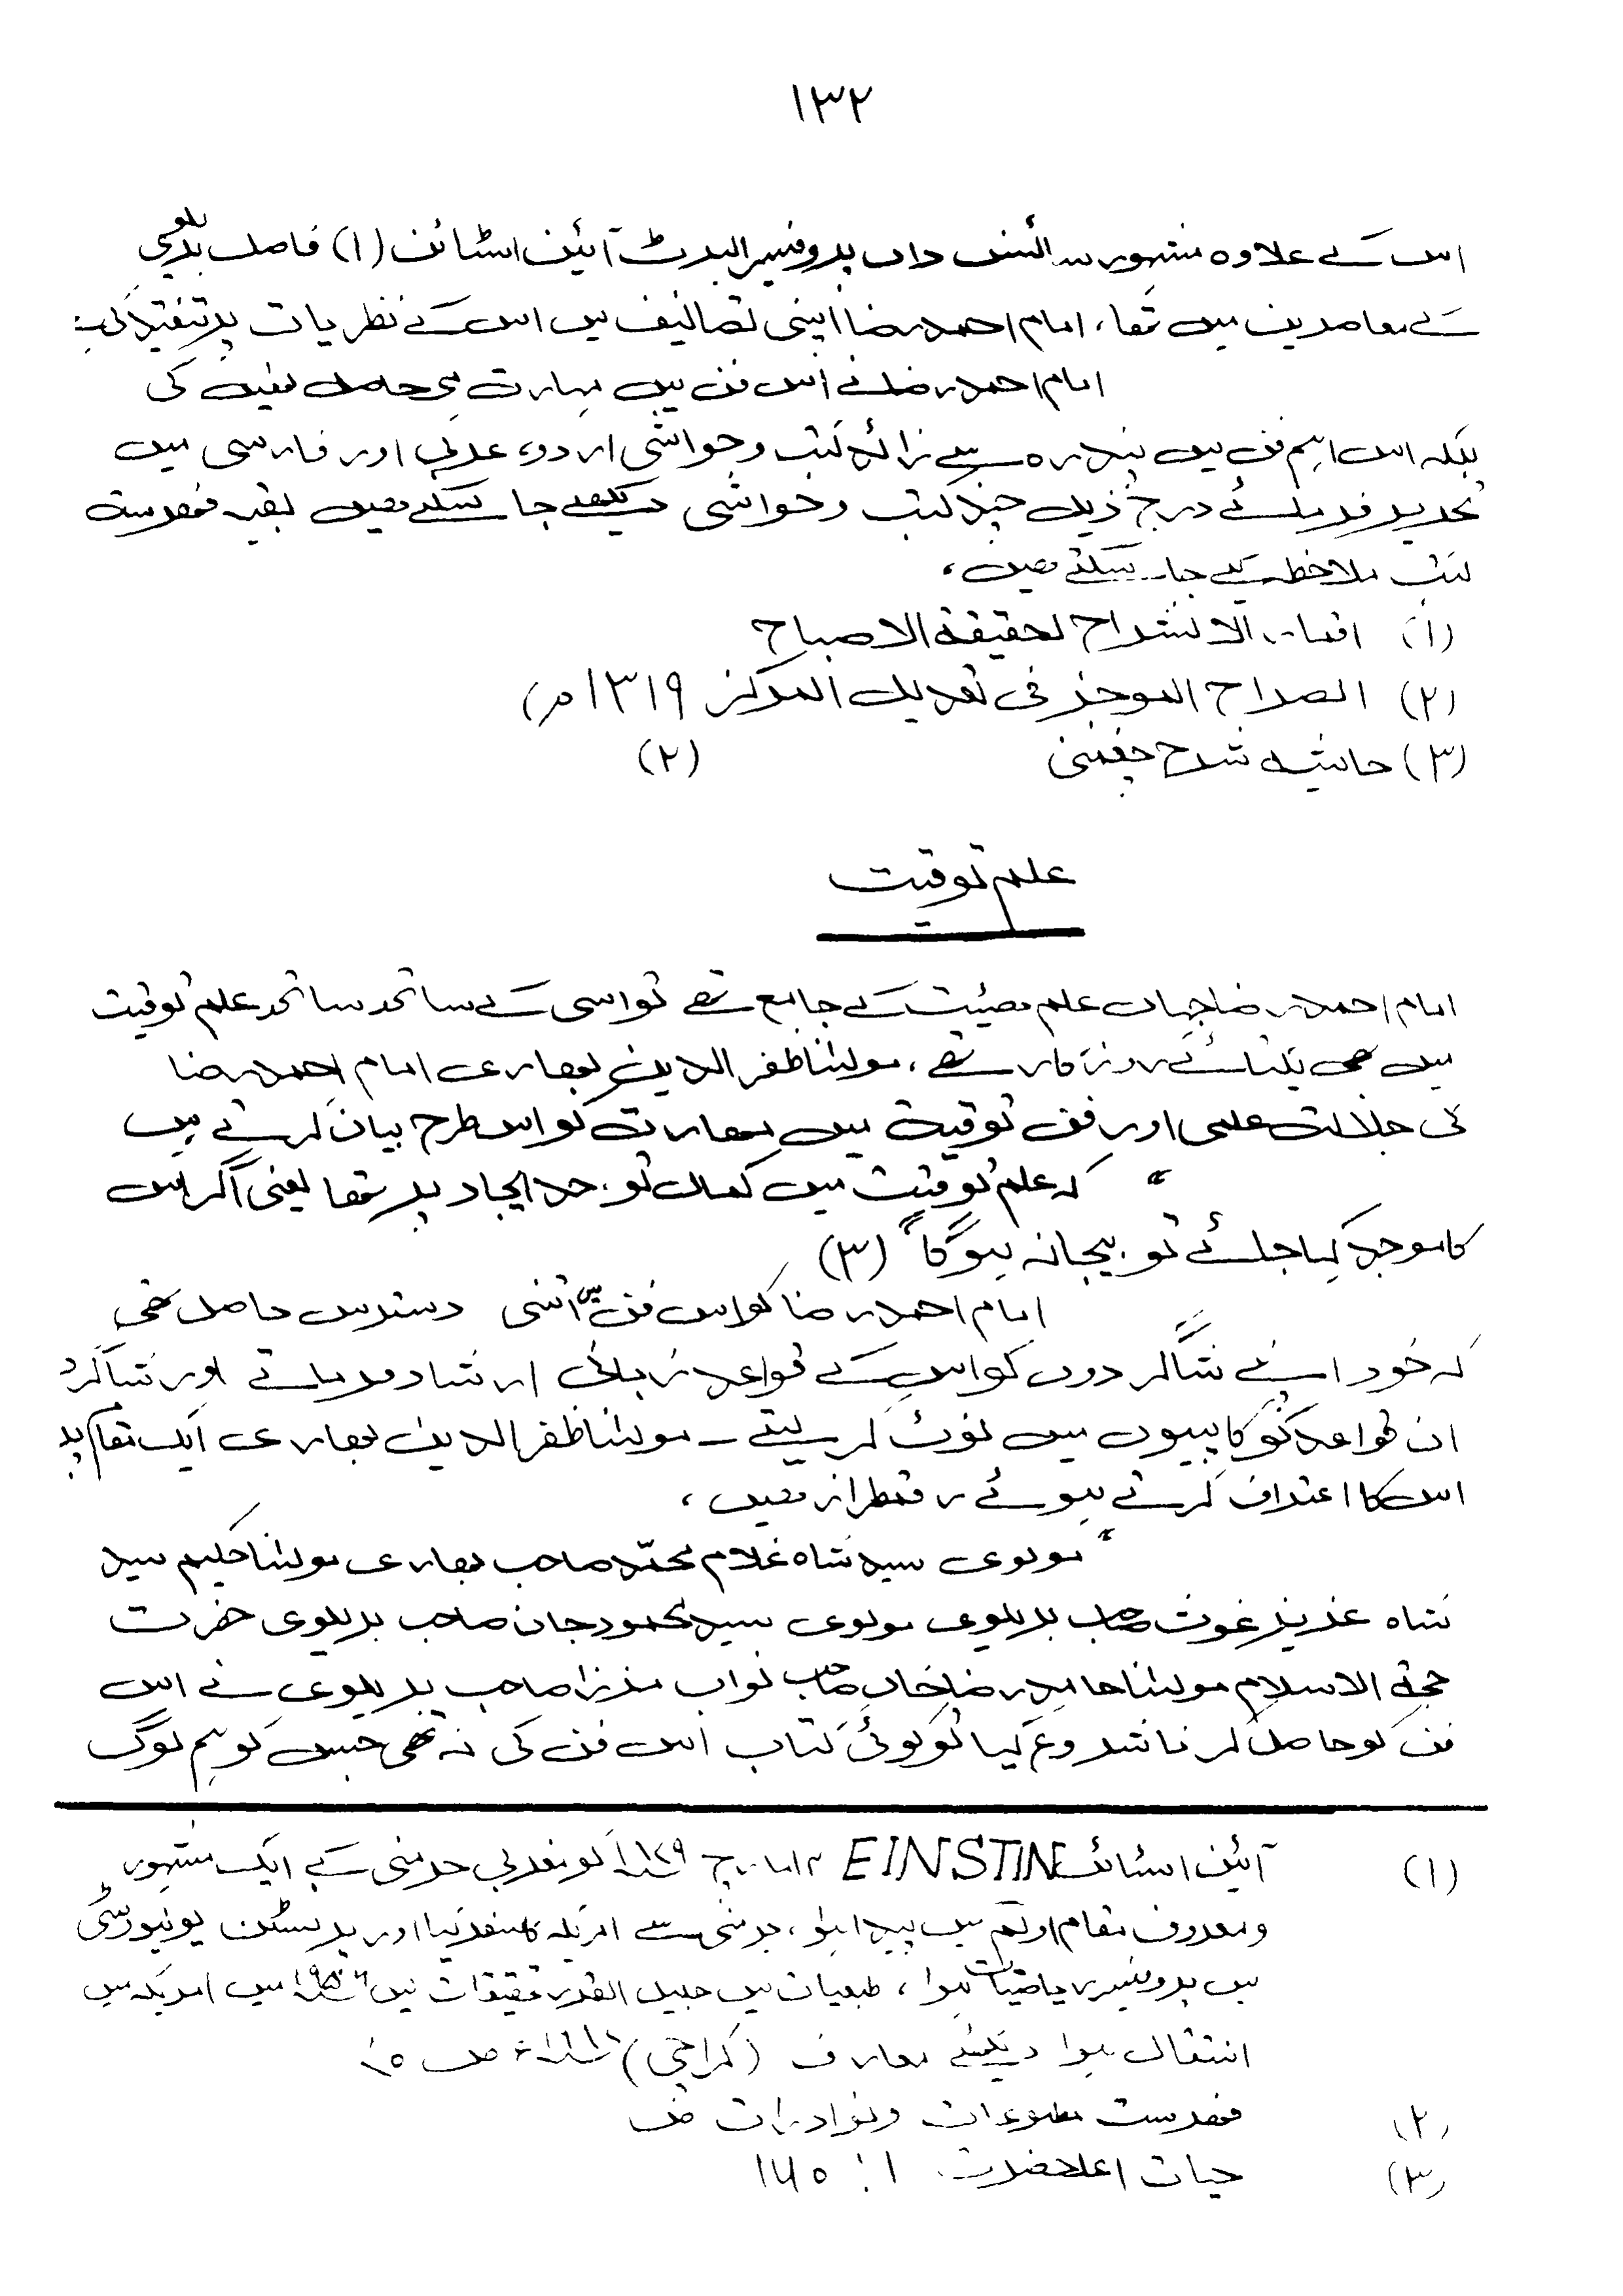 ۱۳۲
اس کے علاوہ مشہور سائنس داں پروفیسر البرٹ آئین اسٹائن (۱) فاضل بریلوی
کے معاصرین میں تھا، امام احمد رضا اپنی تصانیف میں اس کے نظریات پر تنقید کی ہے
امام احمد رضا نے اس فن میں مہارت ہی حاصل نہیں کی
بلکہ اس اہم فن میں پندرہ سے زائد کتب وحواشی اردو، عربی اور فارسی میں
تحریر فرمائے درج ذیل چند کتب وحواشی دیکھے جا سکتے ہیں بقیہ فہرست
کتب ملاحظہ کیے جا سکتے ہیں،
(۱) اقمار الانشراح لحقیقۃ الاصباح
(۲) الصراح الموجز فی تعدیل المرکز ۱۳۱۹ھ)
(۳) حاشیہ شرح چغمنی (۲)
علم توقیت
امام احمد رضا جہاں علم ھیئیت کے جامع تھے تو اسی کے ساتھ ساتھ علم توقیت
میں بھی یکتائے روزگار تھے، مولٰنا ظفر الدین بہاری امام احمد رضا
کی جلالت علمی اور فن توقیت میں مہارت کو اس طرح بیان کرتے ہیں
" کہ علم توقیت میں کمال تو حد ایجاد پر تھا یعنی اگر اس
کا موجد کہا جائے تو بیجا نہ ہوگا" (۳)
امام احمد رضا کو اس فن میں اتنی دسترس حاصل تھی
کہ خود اپنے شاگردوں کو اس کے قواعد زبانی ارشاد فرماتے اور شاگرد
ان قواعد کو کاپیوں میں نوٹ کر لیتے ۔ مولٰنا ظفر الدین بہاری ایک مقام پر
اس کا اعتراف کرتے ہوئے رقمطراز ہیں،
" مولوی سید شاہ غلام محمّد صاحب بہاری مولٰنا حکیم سید
شاہ عزیز غوث صاحب بریلوی مولوی سید محمود جان صاحب بریلوی حضرت
حجۃ الاسلام مولٰنا حامد رضا خاں صاحب نواب مرزا صاحب بریلوی نے اس
فن کو حاصل کرنا شروع کیا تو کوئی کتاب اس فن کی نہ تھی جس کو ہم لوگ
(۱) آئین اسٹائن EINSTIN ۱۴ مارچ ۱۸۷۹ کو مغربی جرمنی کے ایک مشہور
ومعروف مقام اولم میں پیدا ہوا، جرمنی سے امریکہ اور پرنسٹن یونیورسٹی
میں پروفیسر ریاضیات ہوا، طبعیات میں جلیل القدر تحقیقات کیں میں امریکہ میں
انتقال ہوا دیکھئے معارف (کراچی) ص
(۲) فہرست مطبوعات ونوادرات ص
(۳) حیات اعلحضرت ۱: ۱۶۵